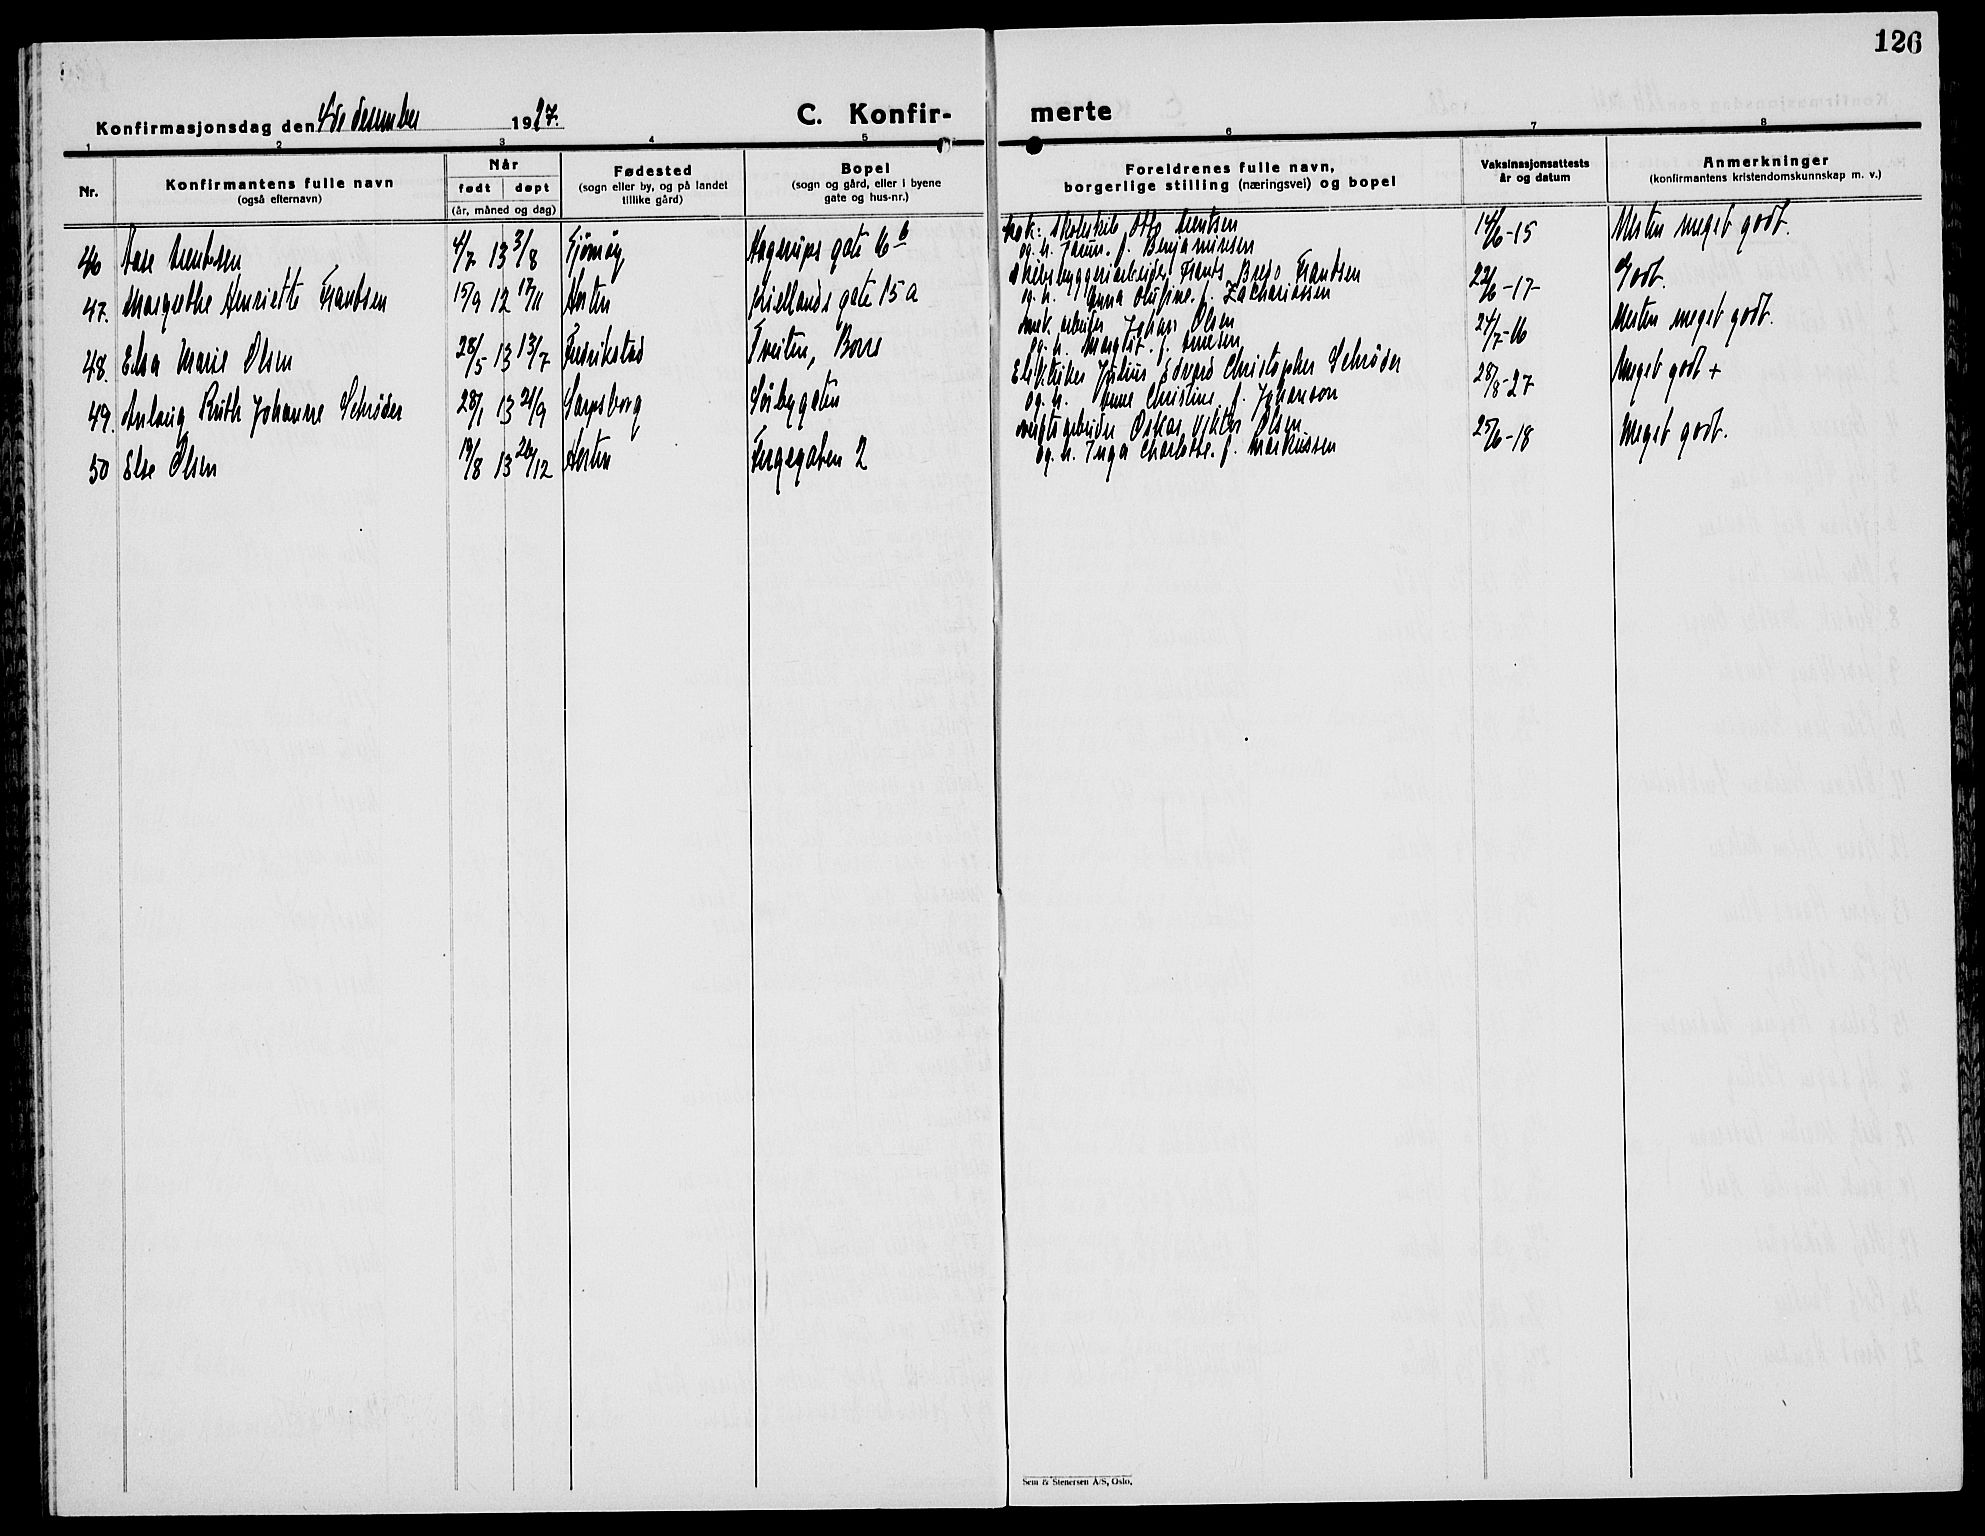 126
Konfirmasjonsdag den 4de desember 1927.
C. Konfir-
merte
1 2 3 4 5 6 7 8
Nr.
Konfirmantens fulle navn
(også efternavn)
Når
født døpt
(år, måned og dag)
Fødested
(sogn eller by, og på landet
tillike gård)
Bopel
(sogn og gård, eller i byene
gate og hus-nr.)
Foreldrenes fulle navn,
borgerlige stilling (næringsvei) og bopel
Vaksinasjonsattests
år og datum
Anmerkninger
(konfirmantens kristendomskunnskap m. v.)
46 Aase Arentsen 4/7 13 3/8 Tjömöy Aagerups gate 6 b
Otto Arentsen 14/6-15 Nesten meget godt.
og h. f. Benjaminsen
47. Margrethe Henriette Frantsen 15/9 12 17/11 Horten Kiellands gate 15 a
Skibsbyggeriarbeider Frants Bredo Frantsen 22/6-17 Godt.
og h. Anna Olufine f. Zachariassen
48. Elsa Marie Olsen 28/5 13 13/7 Fredrikstad Tveiten, Borre
arbeider Johan Olsen 24/7-16 Nesten meget godt.
og h. Margit f. Arnesen
49. Anlaug Ruth Johanne Schrøder 28/1 13 21/9 Sarpsborg Sörbygaten
Elektriker Julius Edvard Christopher Schrøder 28/8-27 Meget godt +
og h. Anne Christine f. Johanson
50 Else Olsen 19/8 13 26/12 Horten Fergegaten 2
verftsarbeider Oskar Viktor Olsen 25/6-18 Meget godt.
og h. Inga Charlotte f. Markussen
Sem & Stenersen A/S, Oslo.